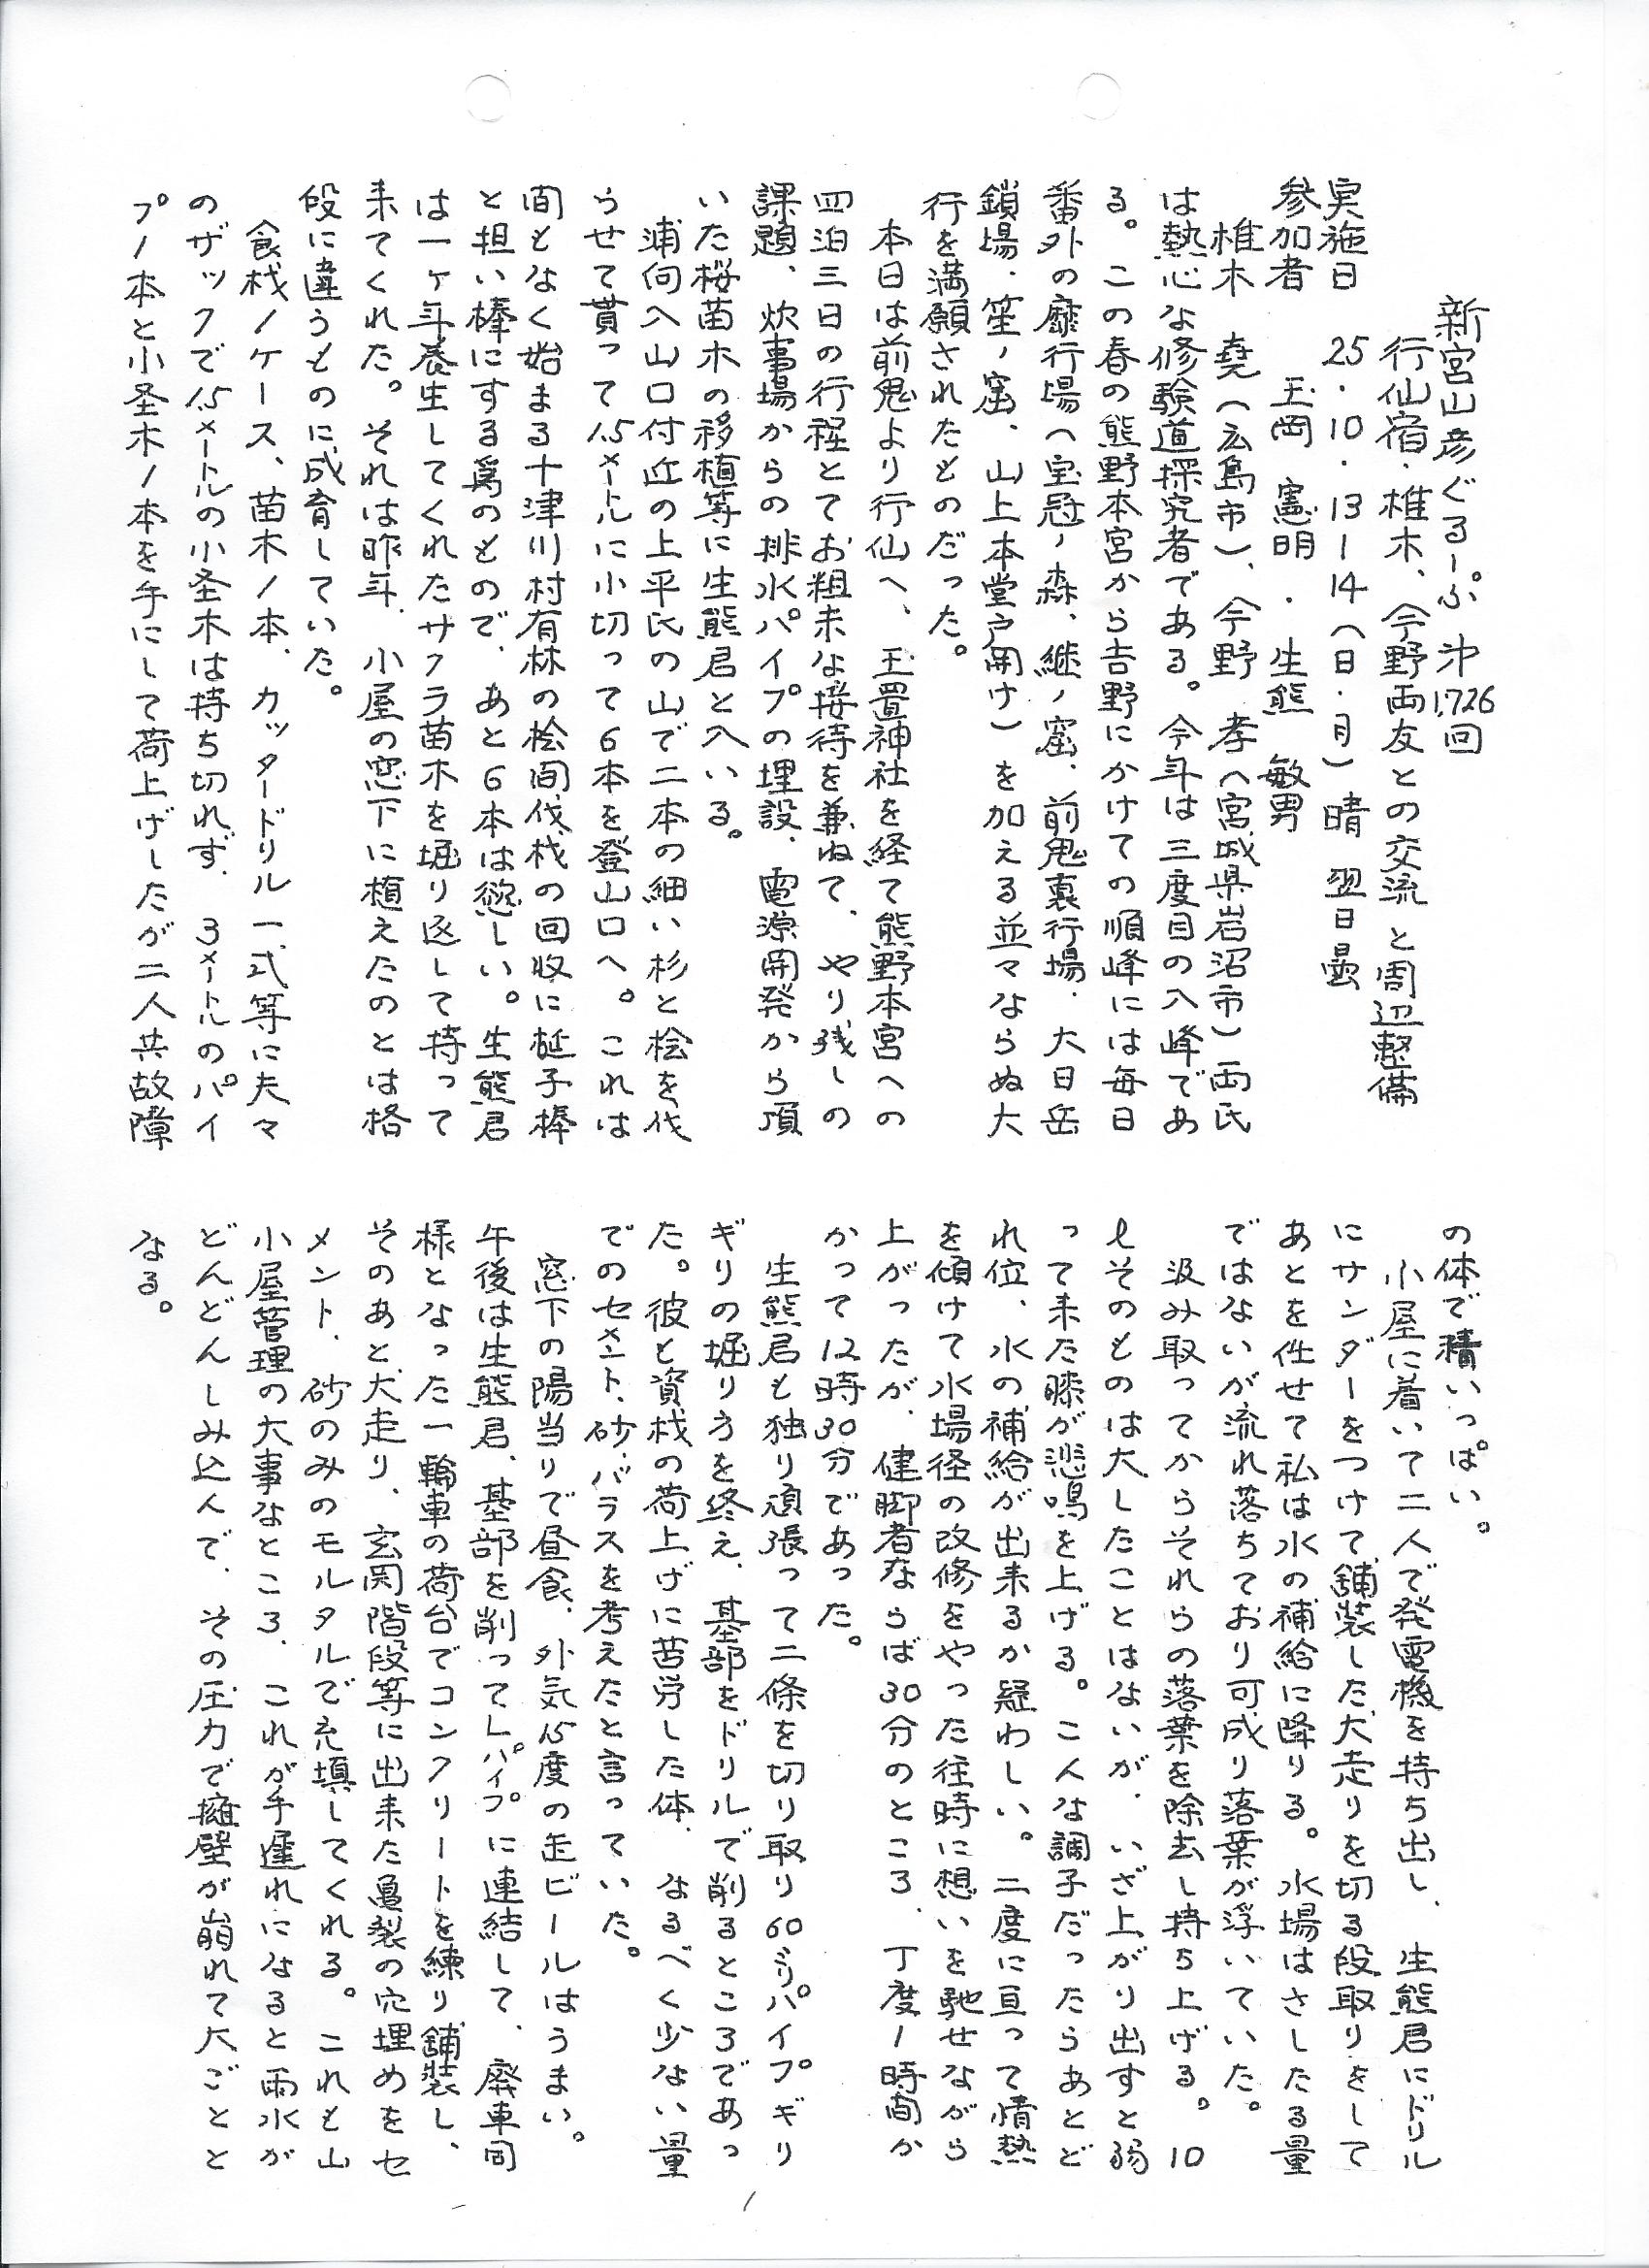 新宮山彦ぐるーぷ 㐧1,726回
行仙宿・椎木、今野両友との交流と周辺整備
実施日 25・10・13―14（日・月）晴 翌日曇
参加者 玉岡 憲明 ・ 生熊 敏男
椎木 堯（広島市）、今野 孝（宮城県岩沼市）両氏
は熱心な修験道探究者である。今年は三度目の入峰であ
る。この春の熊野本宮から吉野にかけての順峰には毎日
番外の靡行場（宝冠ノ森、継ノ窟、前鬼裏行場、大日岳
鎖場、笙ノ窟、山上本堂戸開け）を加える並々ならぬ大
行を満願されたものだった。
本日は前鬼より行仙へ、玉置神社を経て熊野本宮への
四泊三日の行程とてお粗末な接待を兼ねて、やり残しの
課題、炊事場からの排水パイプの埋設、電源開発から頂
いた桜苗木の移植等に生熊君と入いる。
浦向入山口付近の上平氏の山で二本の細い杉と桧を伐
らせて貰って1.5メートルに小切って6本を登山口へ。これは
間もなく始まる十津川村有林の桧間伐材の回収に梃子棒
と担い棒にする為のもので、あと6本は慾しい。生熊君
は一ヶ年養生してくれたサクラ苗木を堀り返して持って
来てくれた。それは昨年、小屋の窓下に植えたのとは格
段に違うものに成育していた。
食材1ケース、苗木1本、カッタードリル一式等に夫々
のザックで1.5メートルの小圣木は持ち切れず、3メートルのパイ
プ1本と小圣木1本を手にして荷上げしたが二人共故障
の体で精いっぱい。
小屋に着いて二人で発電機を持ち出し、生熊君にドリル
にサンダーをつけて舗装した犬走りを切る段取りをして
あとを任せて私は水の補給に降りる。水場はさしたる量
ではないが流れ落ちており可成り落葉が浮いていた。
汲み取ってからそれらの落葉を除去し持ち上げる。10
ℓそのものは大したことはないが、いざ上がり出すと弱
って来た膝が悲鳴を上げる。こんな調子だったらあとど
れ位、水の補給が出来るか疑わしい。二度に亘って情熱
を傾けて水場径の改修をやった往時に想いを馳せながら
上がったが、健脚者ならば30分のところ、丁度1時間か
かって12時30分であった。
生熊君も独り頑張って二條を切り取り60ミリパイプギリ
ギリの堀り方を終え、基部をドリルで削るところであっ
た。彼も資材の荷上げに苦労した体、なるべく少ない量
でのセメント、砂、バラスを考えたと言っていた。
窓下の陽当りで昼食、外気15度の缶ビールはうまい。
午後は生熊君、基部を削ってLパイプに連結して、廃車同
様となった一輪車の荷台でコンクリートを練り舗装し、
そのあと犬走り、玄関階段等に出来た亀裂の穴埋めをセ
メント、砂のみのモルタルで充填してくれる。これも山
小屋管理の大事なところ、これが手遅れになると雨水が
どんどんしみ込んで、その圧力で擁壁が崩れて大ごとと
なる。
1